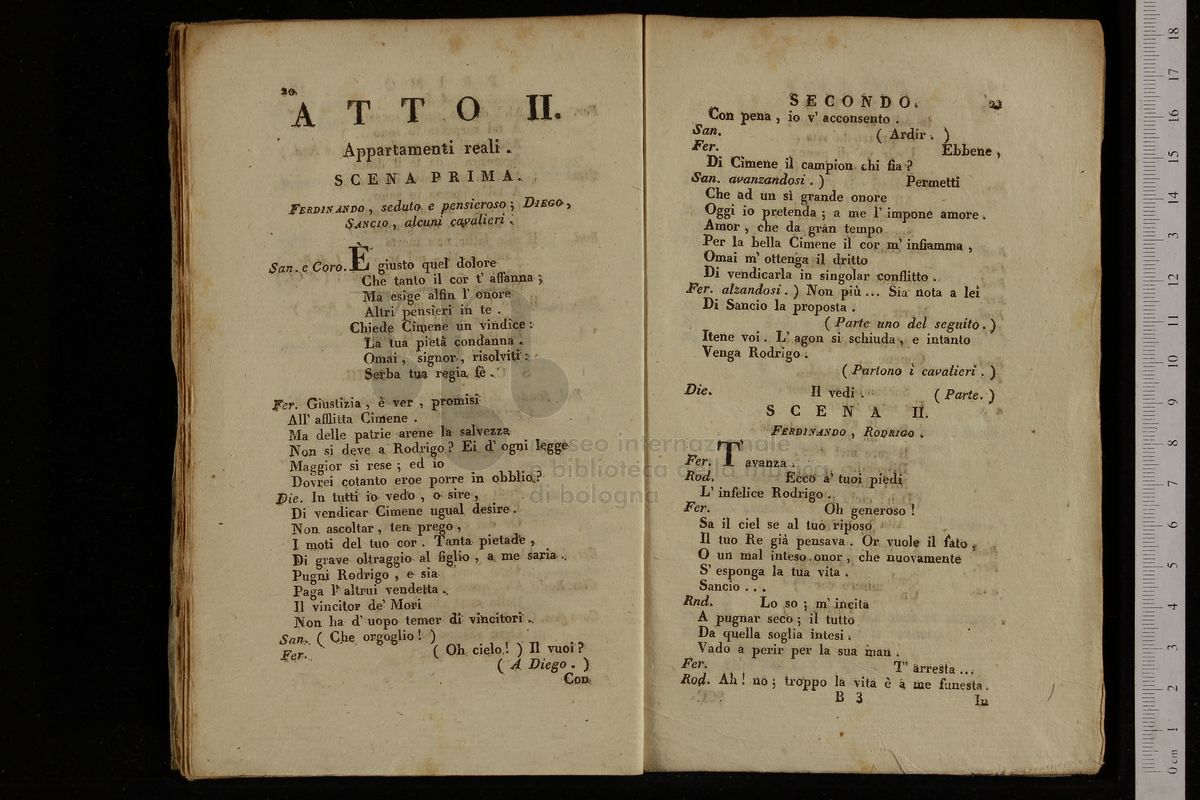 20
ATTO II.
Appartamenti reali.
SCENA PRIMA.
FERDINANDO, seduto e pensieroso; DIEGO,
SANCIO, alcuni cavalieri.
San. e Coro. È giusto quel dolore
Che tanto il cor t' affanna;
Ma esige alfin l' onore
Altri pensieri in te.
Chiede Cimene un vindice:
La tua pietà condanna.
Omai, signor, risolviti:
Serba tua regia fè.
Fer. Giustizia, è ver, promisi
All' afflitta Cimene.
Ma delle patrie arene la salvezza
Non si deve a Rodrigo? Ei d' ogni legge
Maggior si rese; ed io
Dovrei cotanto eroe porre in obblio?
Die. In tutti io vedo, o sire,
Di vendicar Cimene ugual desire.
Non ascoltar, ten prego,
I moti del tuo cor. Tanta pietade,
Di grave oltraggio al figlio, a me saria.
Pugni Rodrigo, e sia
Paga l' altrui vendetta.
Il vincitor de' Mori
Non ha d' uopo temer di vincitori.
San. (Che orgoglio!)
Fer. (Oh cielo!) Il vuoi?
(A Diego.)
Con
SECONDO. 21
Con pena, io v' acconsento.
San. (Ardir.)
Fer. Ebbene,
Di Cimene il campion chi fia?
San. avanzandosi.) Permetti
Che ad un sì grande onore
Oggi io pretenda; a me l' impone amore.
Amor, che da gran tempo
Per la bella Cimene il cor m' infiamma,
Omai m' ottenga il dritto
Di vendicarla in singolar conflitto.
Fer. alzandosi.) Non più... Sia nota a lei
Di Sancio la proposta.
(Parte uno del seguito.)
Itene voi. L' agon si schiuda, e intanto
Venga Rodrigo.
(Partono i cavalieri.)
Die. Il vedi. (Parte.)
SCENA II.
FERDINANDO, RODRIGO.
Fer. T' avanza.
Rod. Ecco a' tuoi piedi
L' infelice Rodrigo.
Fer. Oh generoso!
Sa il ciel se al tuo riposo
Il tuo Re già pensava. Or vuole il fato,
O un mal inteso onor, che nuovamente
S' esponga la tua vita.
Sancio...
Rnd. Lo so; m' incita
A pugnar seco; il tutto
Da quella soglia intesi.
Vado a perir per la sua man.
Fer. T' arresta...
Rod. Ah! no; troppo la vita è a me funesta.
B 3 In
museo internazionale
e biblioteca della musica
di bologna
0 cm 1 2 3 4 5 6 7 8 9 10 11 12 13 14 15 16 17 18